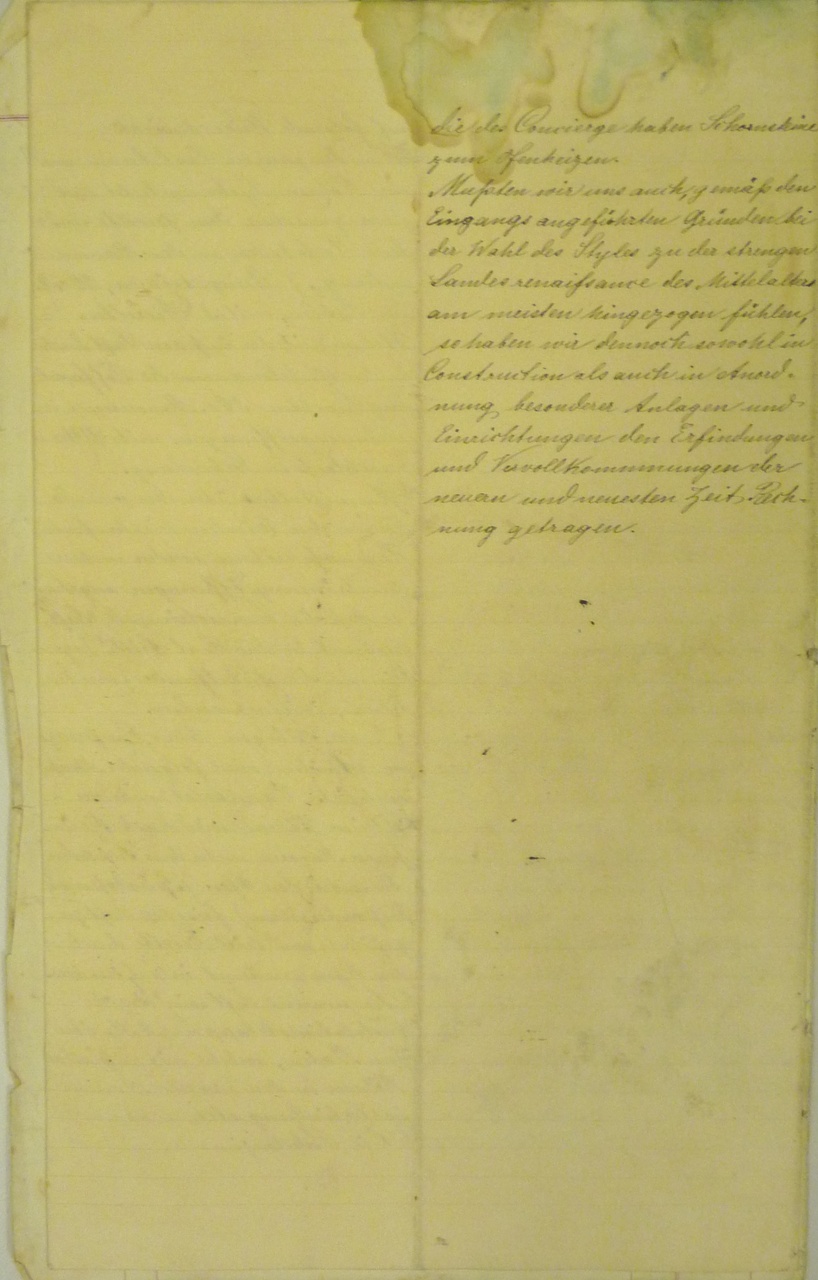 die des Concierge haben Schornsteine
zum Ofenheizen.
Mußten wir uns auch, gemäß den
Eingangs angeführten Gründen bei
der Wahl des Styles zu der strengen
Landesrenaißance des Mittelalters
am meisten hingezogen fühlen,
so haben wir dennoch sowohl in
Construction als auch in Anord-
nung besonderer Anlagen und
Einrichtungen den Erfindungen
und Vervollkommnungen der
neuern und neuesten Zeit Rech-
nung getragen.